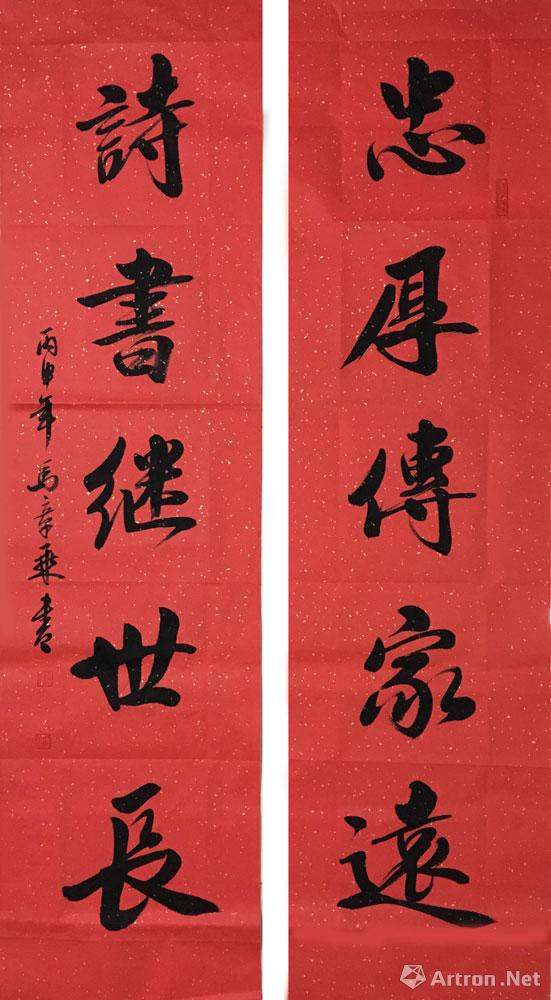 忠厚傳家遠
詩書继世長
丙申年 馬章乘書
Artron.Net